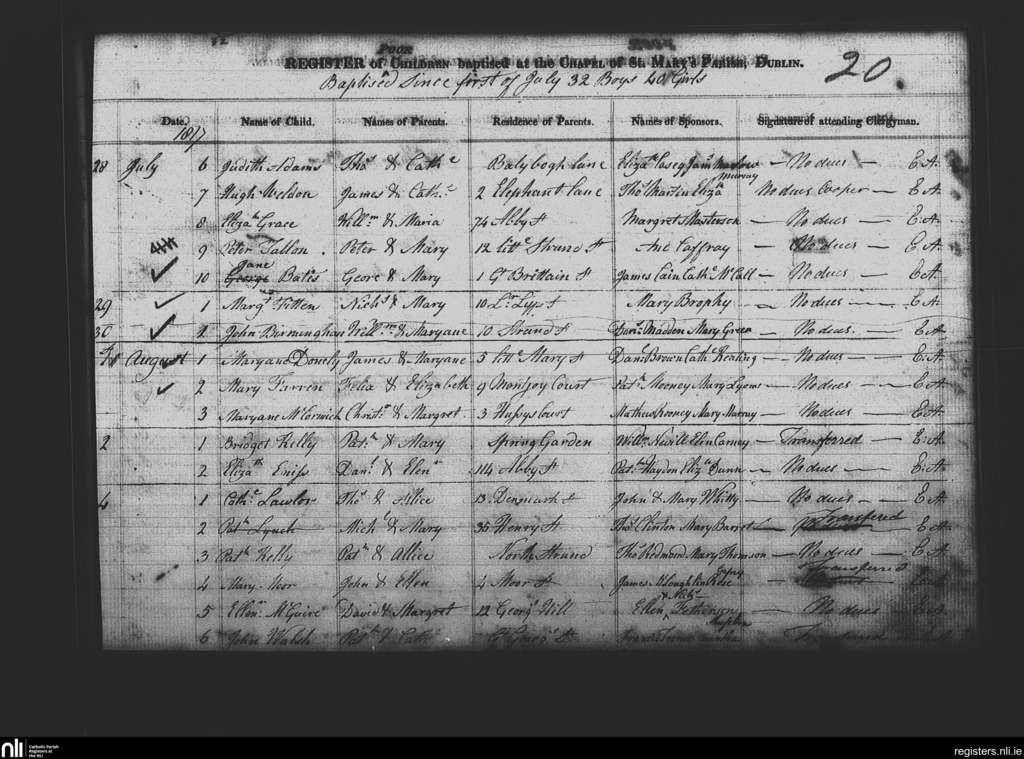 Poor
REGISTER of Children baptised at the Chapel of St. Mary's Parish, Dublin.
20
Baptised Since first of July 32 Boys 40 Girls
Date. Name of Child. Names of Parents. Residence of Parents. Names of Sponsors. Signature of attending Clergyman.
1817
28 July 6 Judith Adams Thos & Cathe Balybogh lane Elizth Casey Jams — No dues — E.A.
Murray
7 Hugh Weldon James & Cath. 2 Elephant lane Thos Martin Elizth No dues Cooper — E.A.
8 Elizth Grace Willm & Maria 74 Abby St Margret Masterson — No dues — E.A.
9 Peter Fallon Peter & Mary 12 litte Strand St Ane Caffray — No dues — E.A.
Jane
10 George Bates Geore & Mary 1 Gt Brittain St James Cain Cathe McCall — No dues — E.A.
29 1 Margt Fitten Nichs & Mary 10 Lr Mary Brophy — No dues — E.A.
30 2 John Burmingham Willm & Maryane 10 Strand St Madden Mary Green — No dues. — E.A.
August 1 Maryane Donely James & Maryane 5 litte Mary St Danl Brown Cathe Keating — No dues — E.A.
2 Mary Farren Felix & Elizabeth 9 Montjoy Court Patk Mooney Mary Lyons — No dues — E.A.
3 Maryane McCormick Christr & Margret 3 Court Mathew Rooney Mary Murray — No dues — E.A.
2 1 Bridget Kelly Patk & Mary Spring Garden Willm Nevill Elen Carney — Transferred — E.A.
2 Elizath Eniss Danl & Elenr 114 Abby St Patk Haydon Elizth Dunn — No dues — E.A.
4 1 Cathe Lawlor Thos & Allice 13 Denmark St John & Mary Whitty — No dues — E.A.
2 Patk Lynch Michl & Mary 35 Henry St Thos Clinton Mary Barret — Transferred — E.A.
3 Patk Kelly Patk & Allice North Strand Thos Redmond Mary Thomson — No dues — E.A.
4 Mary Moor John & Ellen 4 Moor St James McLoughlin Rose — Transferred — E.A.
5 Ellenr McGuire David & Margret 12 Georgs Hill Ellen — No dues — E.A.
6 John Walsh Patk & Cath Gt Georgs St Transferred
nli
Catholic Parish
Registers at
the NLI
registers.nli.ie